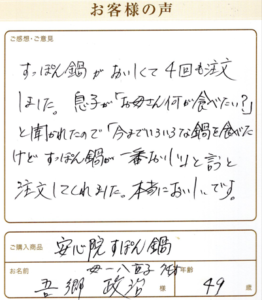 お客様の声
ご感想・ご意見
すっぽん鍋がおいしくて4回も注文
しました。息子が「お母さん何が食べたい?」
と聞かれたので「今までいろいろな鍋を食べた
けどすっぽん鍋が一番おいしい」と言うと
注文してくれました。本当においしいです。
ご購入商品
安心院すっぽん鍋
お名前
吾郷 政治 様
年齢
49 歳